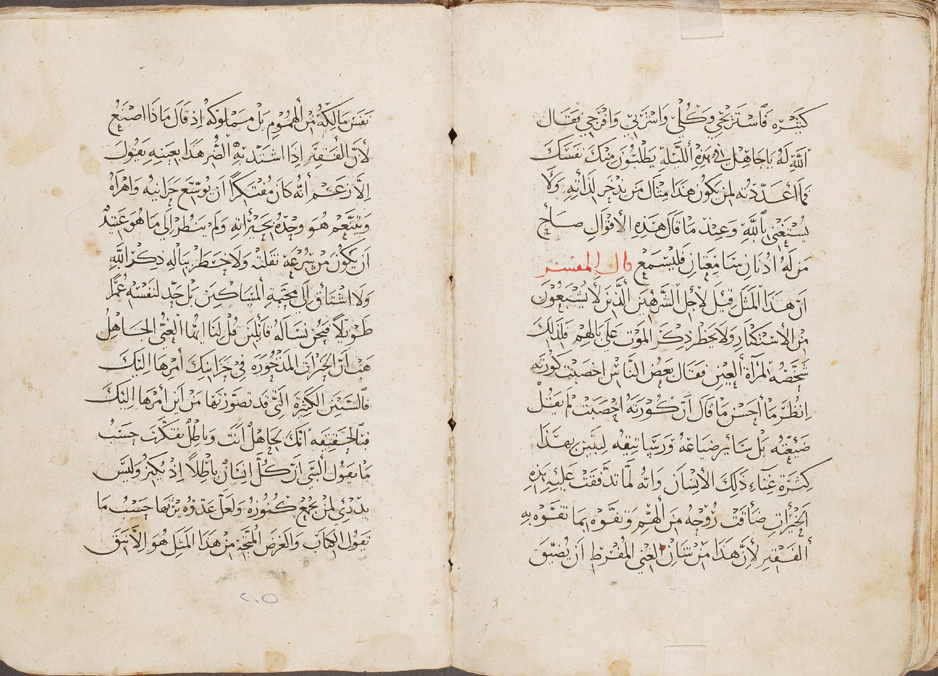 كثيره فاستريحي وكلي واشربي وافرحي فقال
الله له ياجاهل في هذه الليله يطلبون منك نفسك
فما اعددته لمن يكون هذا مثال من يدخر لذاته ولا
يستغني بالله وعند ما قال هذه الاقوال صاح
من له اذنان سامعتان فليسمع قال المفسر
ان هذا المثل قيل لاجل الشرهين الذين لا يشبعون
من الاستكثار ولا يخطر ذكر الموت على بالهم فلذلك
انظر ما احسن ما قال ان كورته اخصبت لم يقل
ضيعته بل سائر ضياعه ورساتيقه ليبين بهذا
كثرة غناء ذلك الانسان وانه لما تدفقت عليه هذه
الخيرات ضاقت روحه من الهم وتفوه بما تفوه به
الفقير لان هذا من شان الغني المفرط ان يضيق
نفس مالكه من الهموم بل مملوكه اذ قال ماذا اصنع
لان الفقير اذا اشتد به الضر هذا بعينه يقول
الا زعم انه كان مفتكرا ان يوسع خزاينه واهراه
ويتنعم هو وحده بخيراته ولم ينظر الى ما هو عتيد
ان يكون من سرعة نقلته ولا خطر بباله ذكر الله
ولا اشتاق الى محبة المساكين بل حد لنفسه عمرا
طويلا فنحن نساله قايلين قل لنا ايها الغني الجاهل
هب ان الخيرات المذخوره في خزاينك امرها اليك
فالسنين الكثيره التي قد تصورتها من اين امرها اليك
فبالحقيقه انك لجاهل انت وباطل بفكرك حسب
ما يقول النبي ان كل انسان باطلا اذ يكنز وليس
يدري لمن يجمع كنوزه ولعل عدوه يرثها حسب ما
يقول الكتاب والغرض المتجه من هذا المثل هو الاسبق
٢٠٥